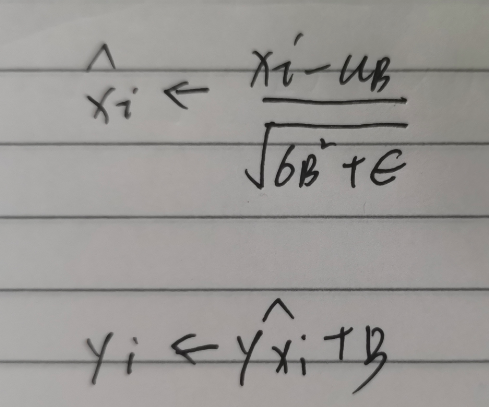 x̂i ← (xi - uB) / √(6B² + ϵ)
yi ← yx̂i + B